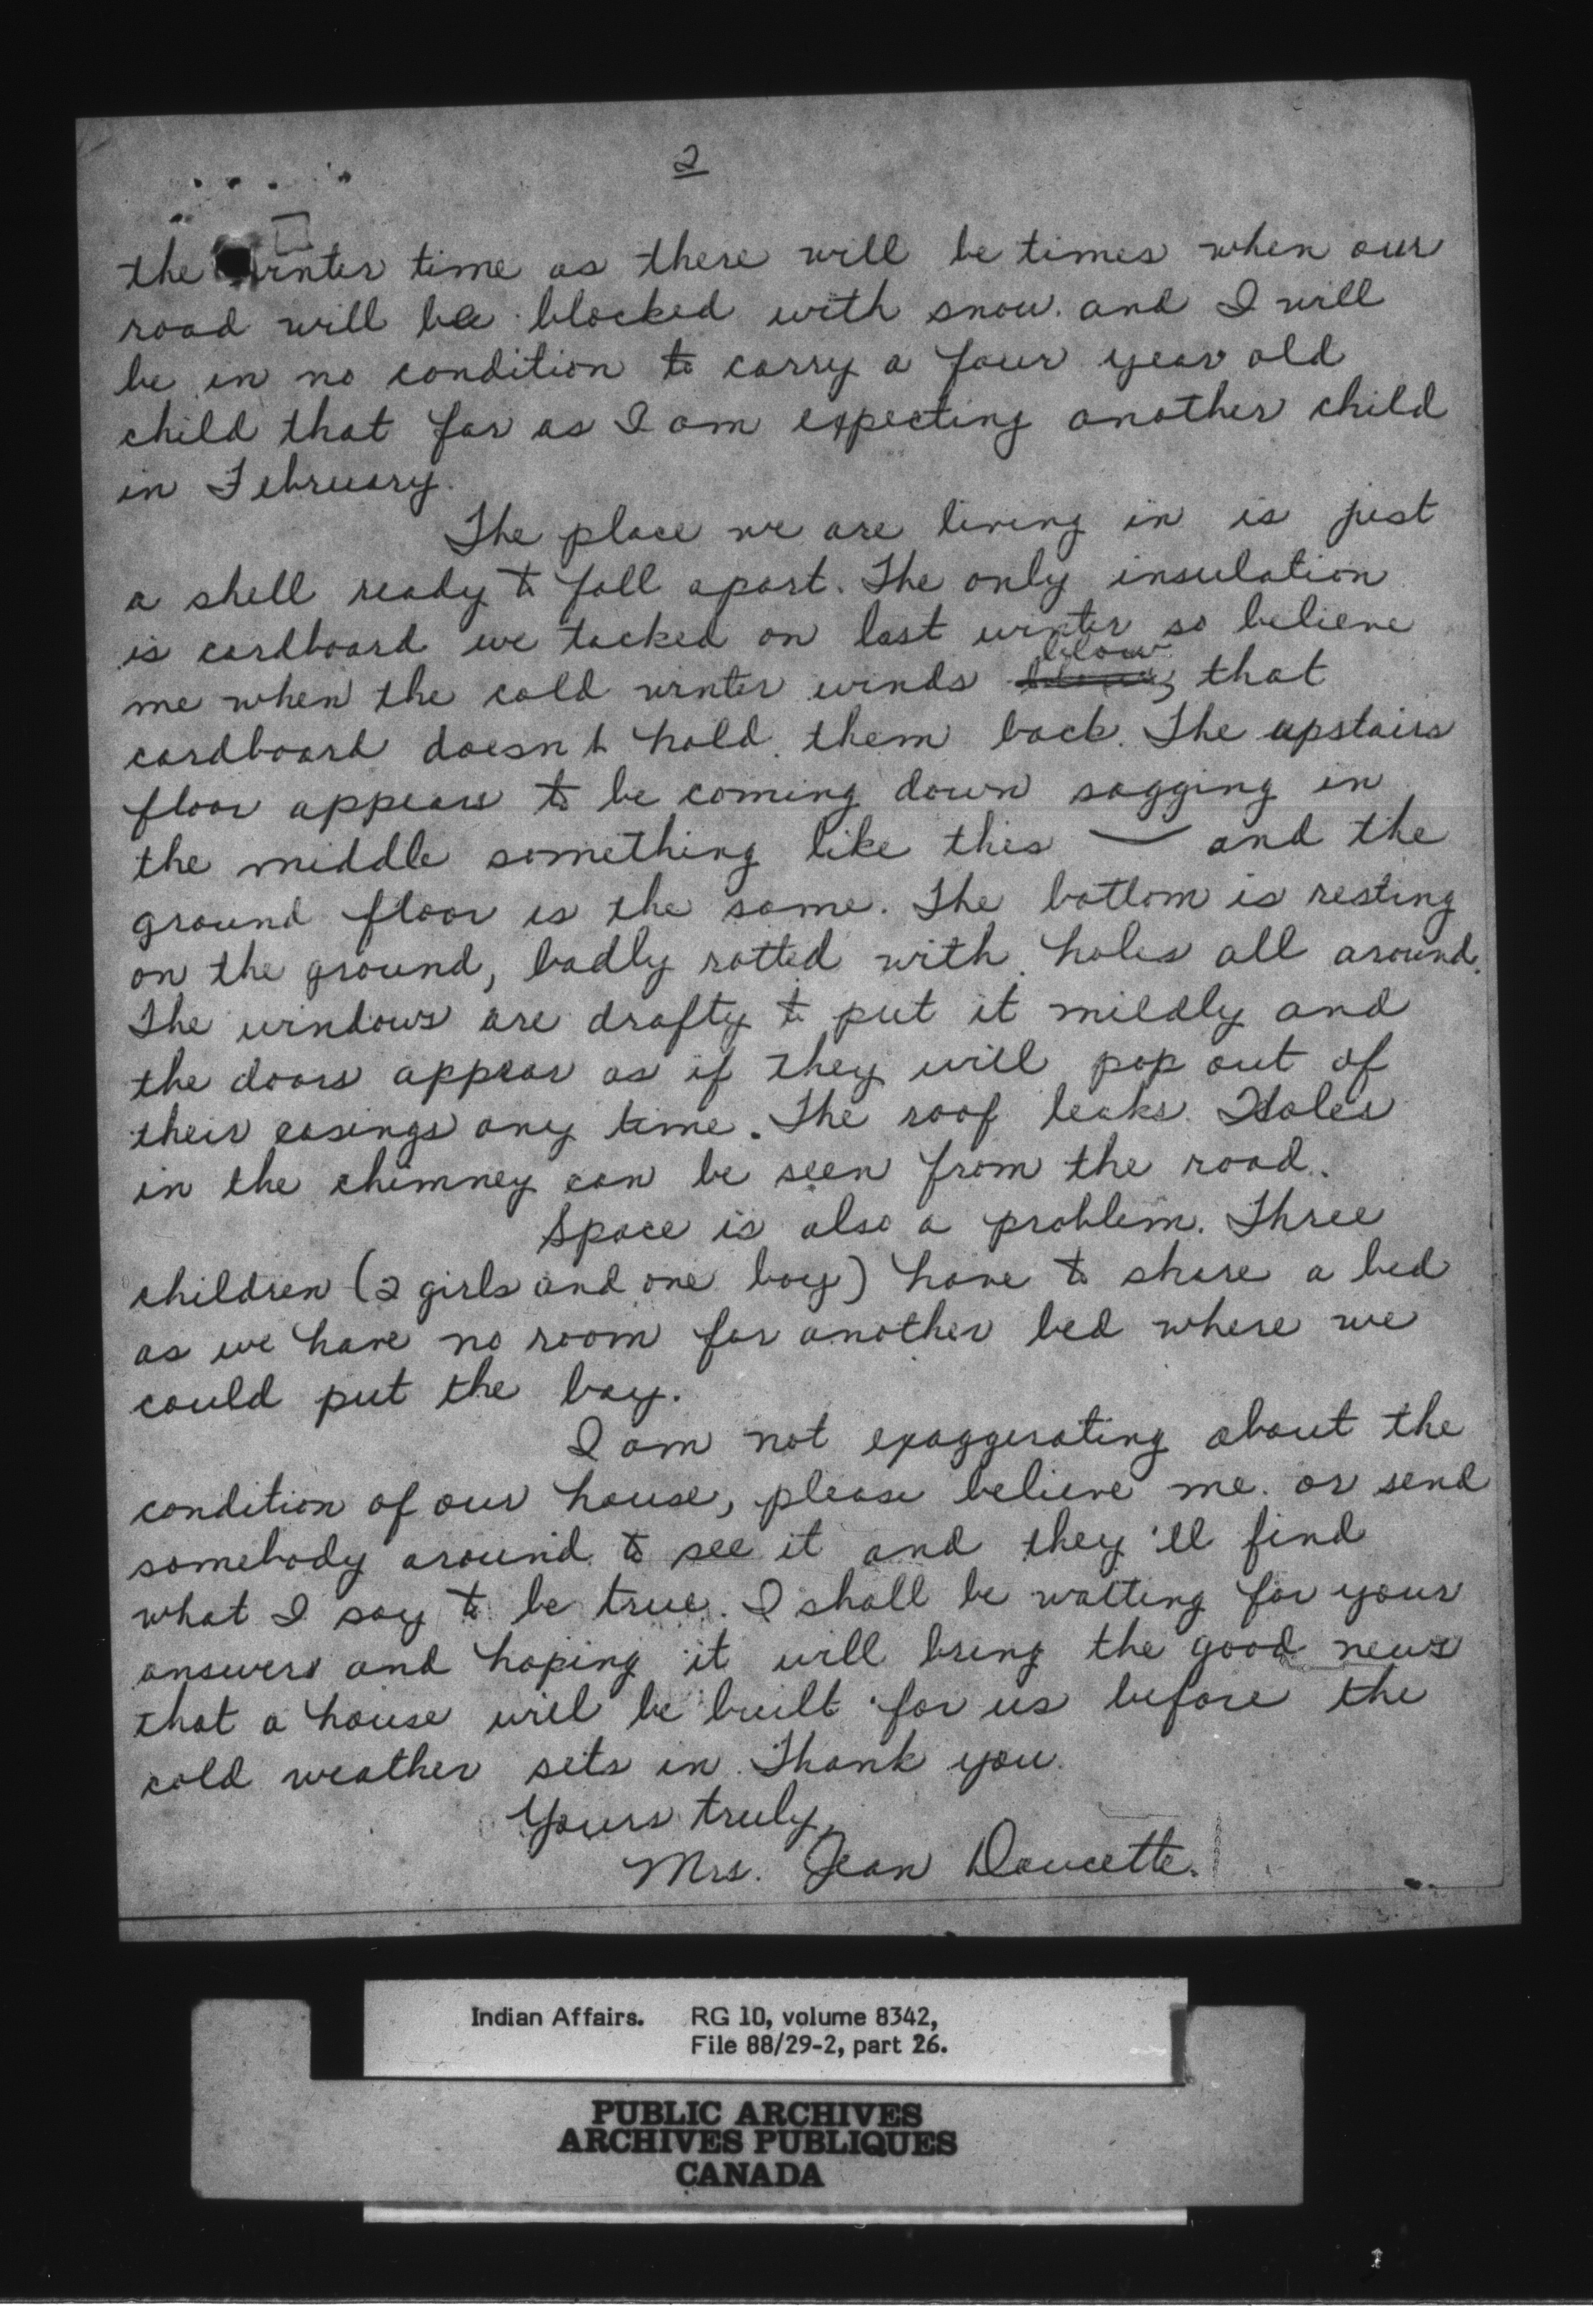 2
the winter time as there will be times when our
road will be blocked with snow. and I will
be in no condition to carry a four year old
child that far as I am expecting another child
in February.
The place we are living in is just
a shell ready to fall apart. The only insulation
is cardboard we tacked on last winter so believe
me when the cold winter winds blow, that
cardboard doesn't hold them back. The upstairs
floor appears to be coming down sagging in
the middle something like this — and the
ground floor is the same. The bottom is resting
on the ground, badly rotted with holes all around.
The windows are drafty to put it mildly and
the doors appear as if they will pop out of
their casings any time. The roof leaks. Holes
in the chimney can be seen from the road.
Space is also a problem. Three
children (2 girls and one boy) have to share a bed
as we have no room for another bed where we
could put the boy.
I am not exaggerating about the
condition of our house, please believe me. or send
somebody around to see it and they'll find
what I say to be true. I shall be waiting for your
answers and hoping it will bring the good news
that a house will be built for us before the
cold weather sets in. Thank you.
Yours truly,
Mrs. Jean Doucette.
Indian Affairs. RG 10, volume 8342,
File 88/29-2, part 26.
PUBLIC ARCHIVES
ARCHIVES PUBLIQUES
CANADA